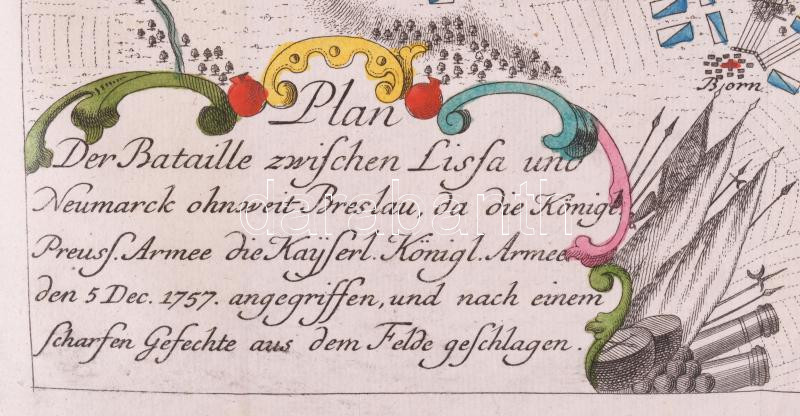 Plan
Der Bataille zwiſchen Liſsa und
Neumarck ohnweit Breslau, da die Königl.
Preuſs. Armee die Kayſerl. Königl. Armee
den 5 Dec. 1757. angegriffen, und nach einem
ſcharfen Gefechte aus dem Felde geſchlagen.
Bjorn
darabanth